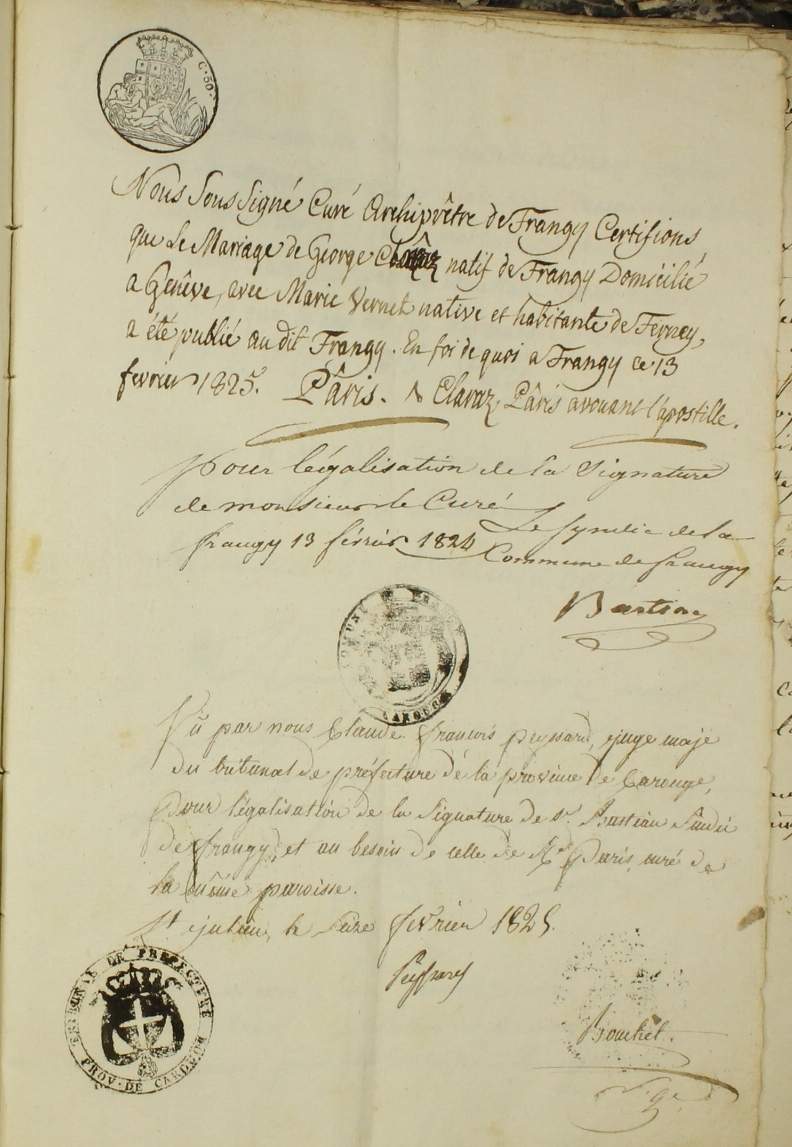 C. 50.
Nous Sous Signé Curé Archiprêtre de Frangy Certifions
que Le Mariage de George natif de Frangy Domicilié
a Genêve, avec Marie Vernet native et habitante de Ferney,
a été publié au dit Frangy. En foi de quoi a Frangy ce 13
fevrier 1825. Pâris. Clavaz, Pâris avouant l'apostille.
Pour légalisation de la Signature
de monsieur le Curé
frangy 13 février 1824
Le Syndic de la
Commune de frangy
Bastian
COMUNE DI
CAROUGE
Vû par nous Claude françois peyssard, juge maje
du tribunal de préfecture de la province de Carouge,
pour légalisation de la Signature de Sr Bastian Sindic
de frangy, et au besoin de celle de Mr Paris, curé de
la même paroisse.
St julien, le Seize fevrier 1825.
Peyssard
TRIBUNAL DE PREFECTURE
PROV. DE CAROUGE
Bouchet